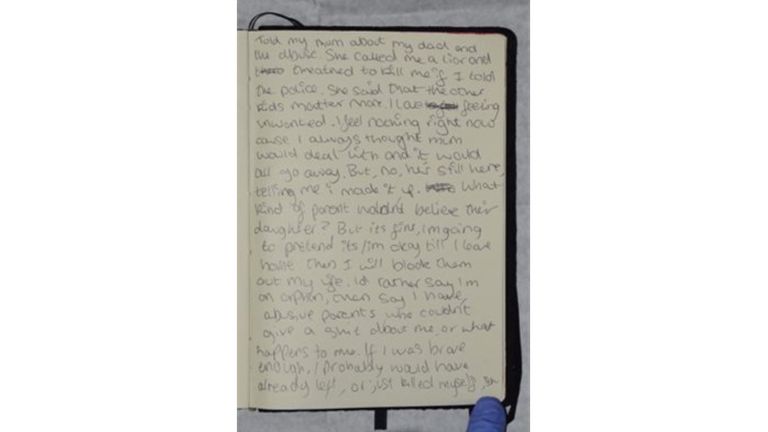 Told my mum about my dad and
the abuse. She called me a liar and
threatned to kill me if I told
the police. She said that the other
kids matter more. I feeing
unwanted. I feel nothing right now
cause I always thought mum
would deal with and it would
all go away. But, no, he's still here,
telling me i made it up. What
kind of parent wouldn't believe their
daughter? But its fine, im going
to pretend its/im okay till I leave
home. Then I will block them
out my life. Id rather say I'm
an orphan, then say I have,
abusive parents who couldn't
give a shit about me, or what
happens to me. If I was brave
enough, I probably would have
already left, or just killed myself,